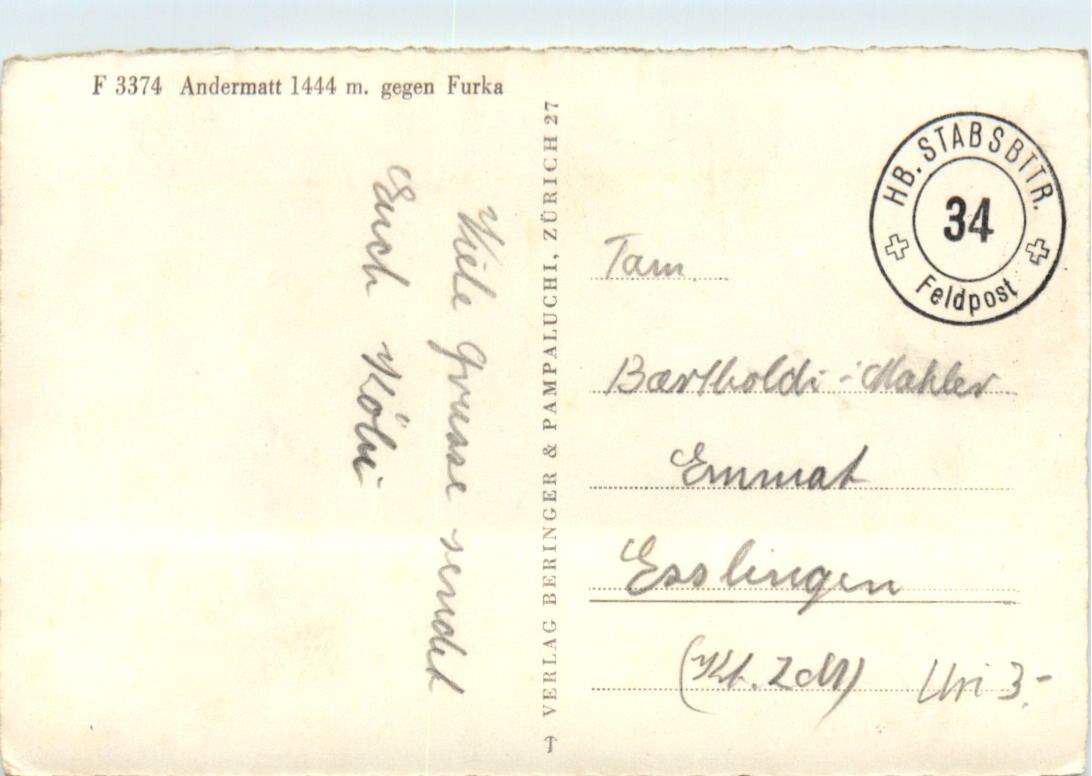 F 3374 Andermatt 1444 m. gegen Furka
Viele Grüsse sendet
Euch Köbi
VERLAG BERINGER & PAMPALUCHI, ZÜRICH 27
HB. STABSBTTR.
34
Feldpost
Fam
Bartholdi-Mahler
Emmat
Esslingen
(Kt. Zch)
Uri 3.-